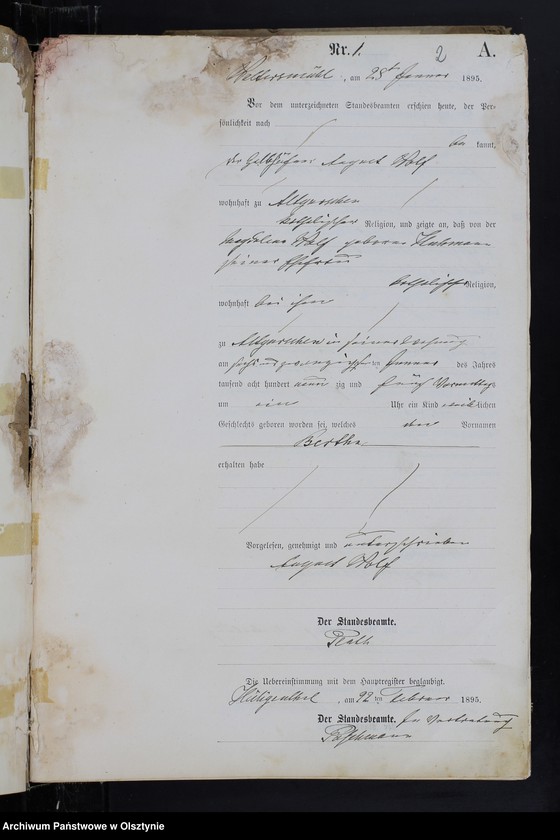 Nr. 1.
2
A.
am 28ten Januar 1895.
Vor dem unterzeichneten Standesbeamten erschien heute, der Per-
sönlichkeit nach
be kannt,
der August Wolf
wohnhaft zu Altgarschen
katholischer Religion, und zeigte an, daß von der
Magdalena Wolf geborene
seiner Ehefrau
katholischer Religion,
wohnhaft bei ihm
zu Altgarschen in seiner Wohnung
am sechsundzwanzigsten ten Januar des Jahres
tausend acht hundert neun zig und fünf Vormittags
um ein Uhr ein Kind weib lichen
Geschlechts geboren worden sei, welches den Vornamen
Bertha
erhalten habe
Vorgelesen, genehmigt und unterschrieben
August Wolf
Der Standesbeamte.
Die Uebereinstimmung mit dem Hauptregister beglaubigt.
Heiligenthal, am 22 ten Februar 1895.
Der Standesbeamte. In Vertretung
Archiwum Państwowe w Olsztynie